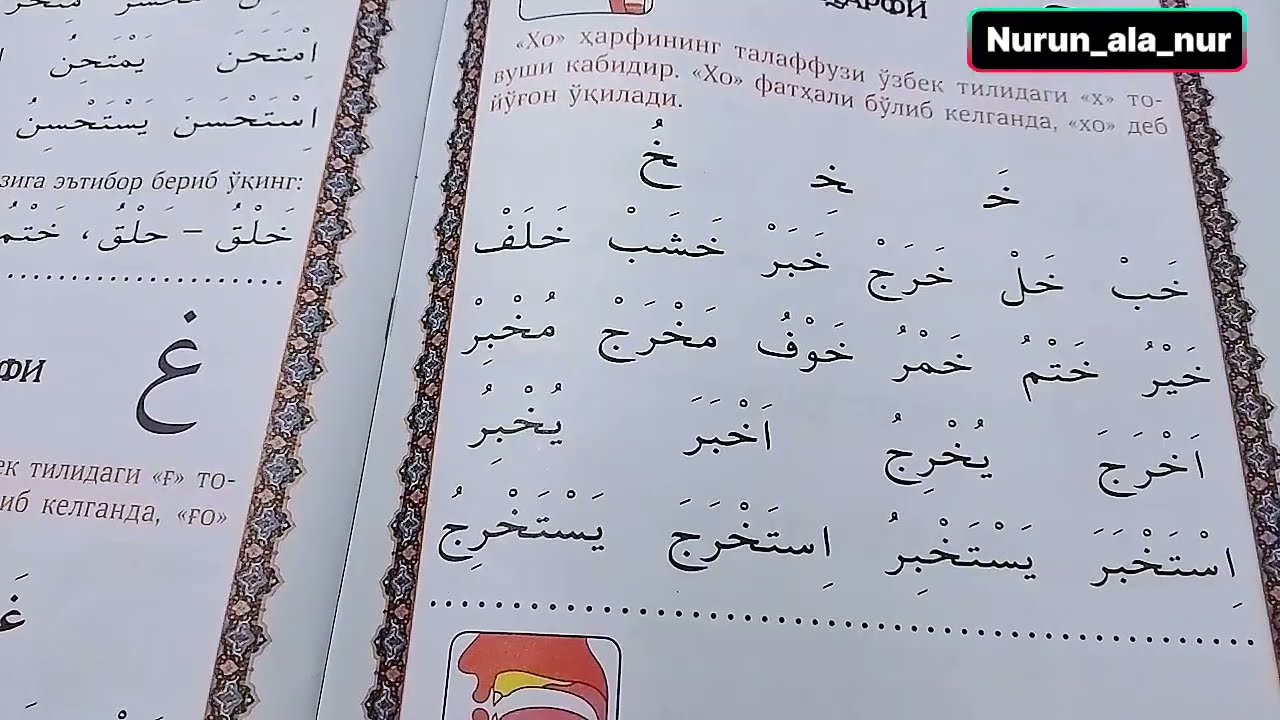 Nurun_ala_nur
ҲАРФИ
«Хо» ҳарфининг талаффузи ўзбек тилидаги «х» то-
вуши кабидир. «Хо» фатҳали бўлиб келганда, «хо» деб
йўғон ўқилади.
خَ خِ خُ
خَبْ خَلْ خَرَجْ خَبَرْ خَشَبْ خَلَفْ
خَيْرُ خَتْمُ خَمْرُ خَوْفُ مَخْرَجْ مُخْبِرْ
اَخْرَجَ يُخْرِجُ اَخْبَرَ يُخْبِرُ
اِسْتَخْبَرَ يَسْتَخْبِرُ اِستَخْرَجَ يَسْتَخْرِجُ
اِمْتَحَنَ يَمْتَحِنُ
اِسْتَحْسَنَ يَسْتَحْسِنُ
зига эътибор бериб ўқинг:
خَلْقُ – حَلْقُ، خَتْمُ
غ
РФИ
ек тилидаги «ғ» то-
иб келганда, «ғо»
غَ